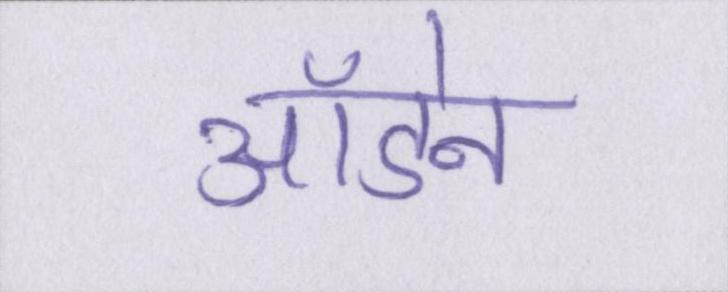 ऑडेन